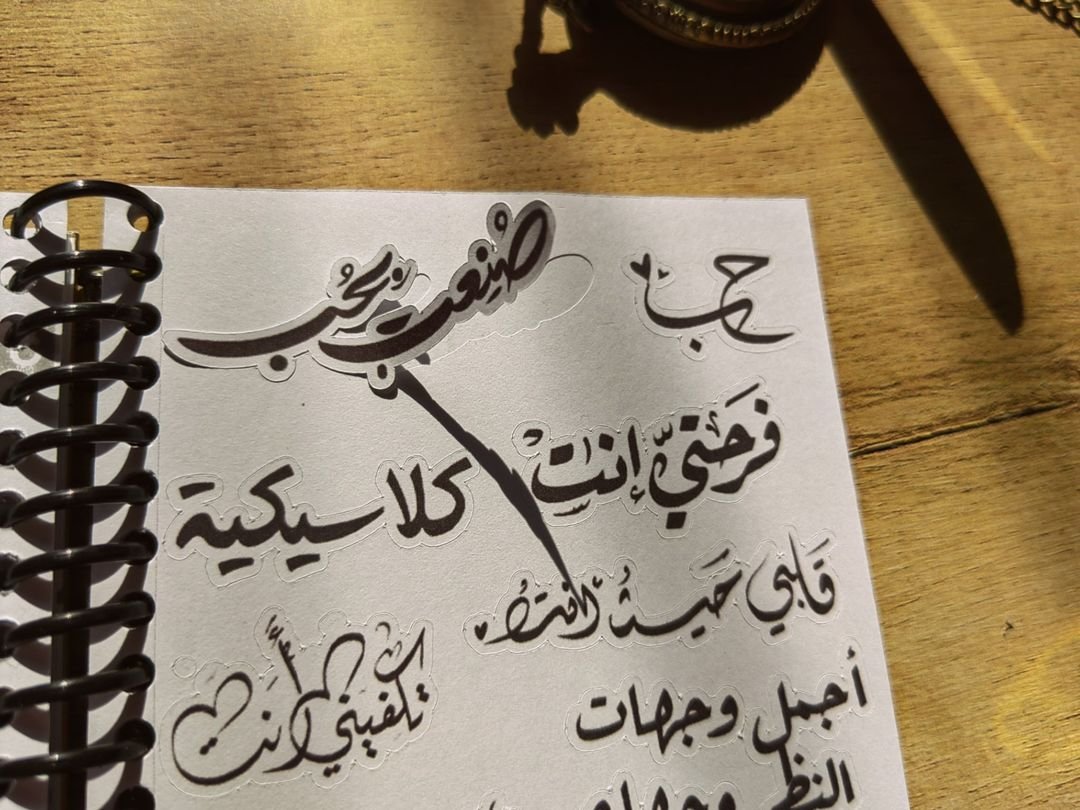 حب
صُنعت بحُب
فرَحَتيّ إنت
كلاسيكية
قلبي حَيثُ أنتَ
يكفيني أنَت
أجمل وجهات
النظر وجهك